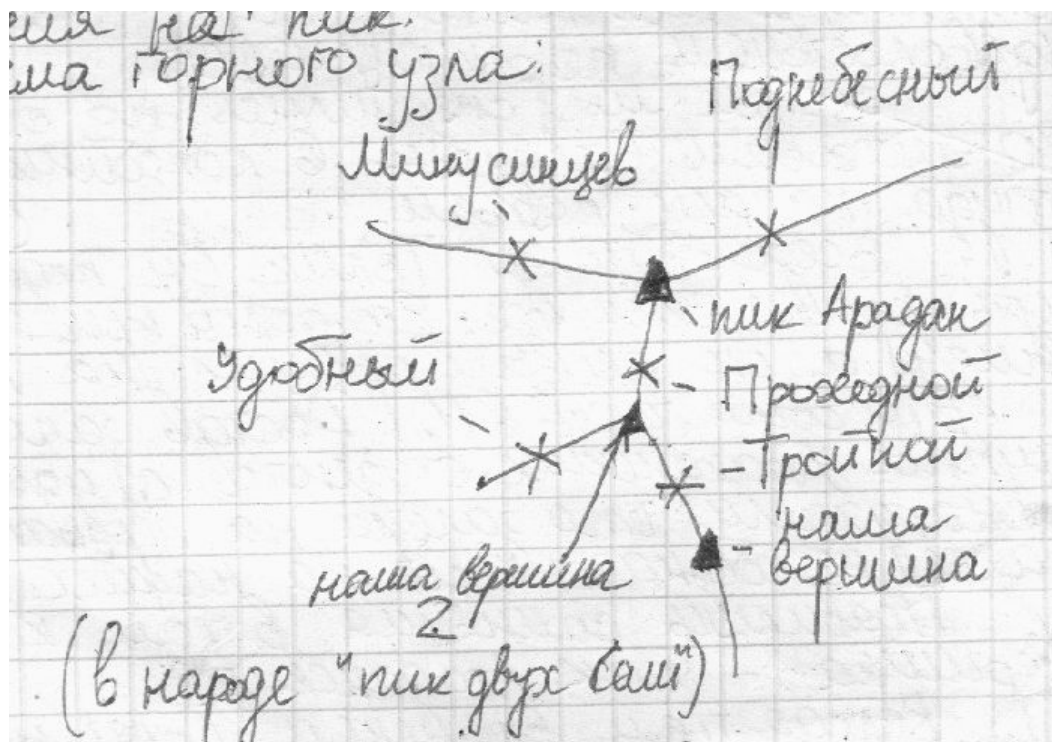 ия на пик.
ма горного узла:
Поднебесный
Минусинцев
пик Арадан
Удобный
Проходной
Тройной
наша
вершина
наша вершина
2
(в народе "пик двух Саш")